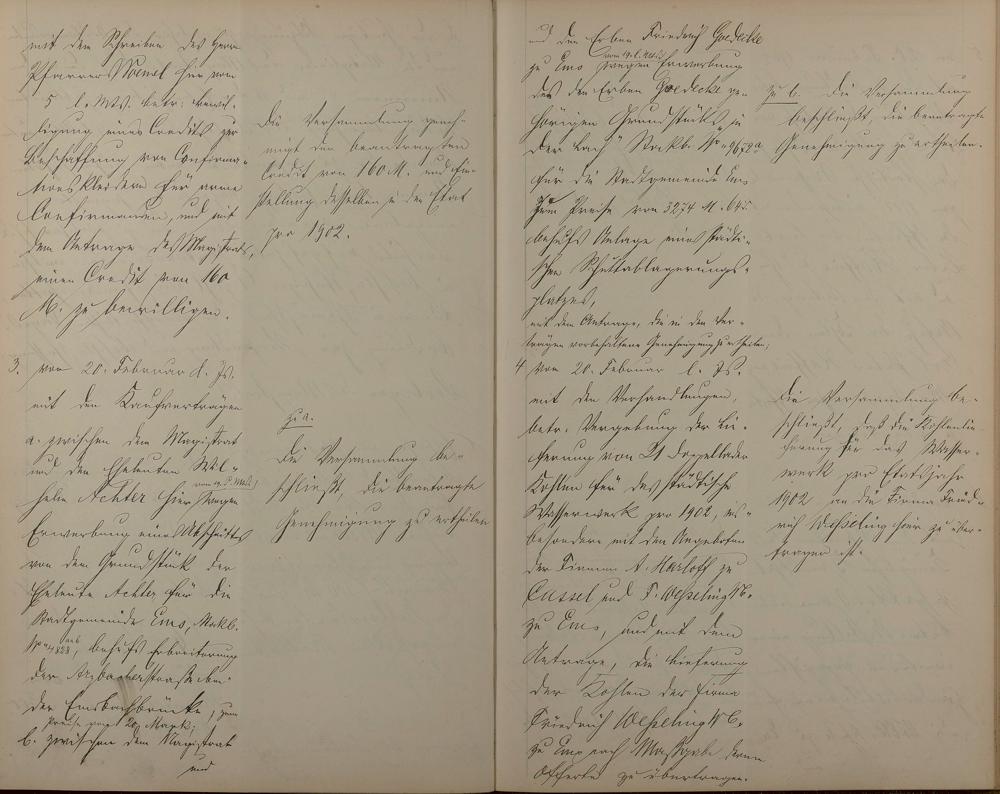 mit dem Schreiben des Herrn
Pfarrers Wenel hier vom
5 l. Mts. betr: Bewil-
ligung eines Credits zur
Beschaffung von Confirma-
tionskleidern für arme
Confirmanden, und mit
dem Antrage des Magistrats,
einen Credit von 160
M. zu bewilligen.
Die Versammlung geneh-
migt den beantragten
Credit von 160 M. und Ein-
stellung desselben in den Etat
pro 1902.
3. vom 20. Februar d. Js.
mit den Kaufverträgen
a. zwischen dem Magistrat
und den Eheleuten Wil-
helm Achter hier, wegen
Erwerbung eines Abschnitts
von dem Grundstück der
Eheleute Achter für die
Stadtgemeinde Ems, Stockb.
No 4828, behufs Erbreiterung
der Arzbacherstraße bei
der Emsbachbrücke, zum
Preise von 20 Mark;
b. zwischen dem Magistrat
und
zu a.
Die Versammlung be-
schließt, die beantragte
Genehmigung zu ertheilen
und den Erben Friedrich Goedecke
zu Ems wegen Erwerbung
des den Erben Goedecke ge-
hörigen Grundstücks "in
der Lach" Stockb. No 9672a
für die Stadtgemeinde Ems
zum Preise von 3274 M. 64
behufs Anlage eines städti-
schen Schuttablagerungs-
platzes,
mit dem Antrage, die in den Ver-
trägen vorbehaltene Genehmigung zu ertheilen;
zu b. Die Versammlung
beschließt, die beantragte
Genehmigung zu ertheilen.
4 vom 20. Februar l. Js.
mit den Verhandlungen,
betr. Vergebung der Lie-
ferung von 21 Doppellader
Kohlen für das städtische
Wasserwerk pro 1902, ins-
besondere mit den Angeboten
der Firmen A. Harloff zu
Cassel und F. Wesseling
zu Ems, und mit dem
Antrage, die Lieferung
der Kohlen der Firma
Friedrich Wesseling
zu Ems nach Maßgabe deren
Offerte zu übertragen.
Die Versammlung be-
schließt, daß die Kohlenlie-
ferung für das Wasser-
werk pro Etatsjahr
1902 an die Firma Fried-
rich Wesseling hier zu über-
tragen ist.